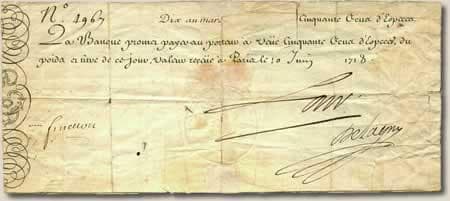 N.º 4963 Dix au marc Cinquante Ecus d'Especes
La Banque promet payer au porteur à Veüe Cinquante Ecus d'Especes, du
poids et titre de ce jour, valeur reçeüe à Paris le 10 Juin 1718
Law